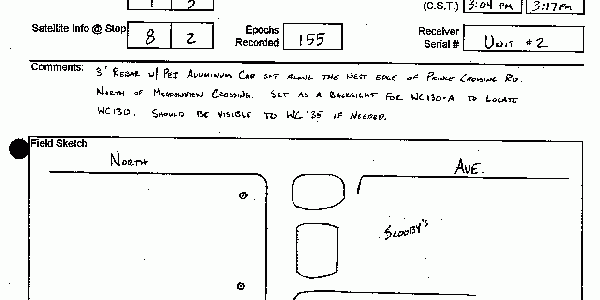 1 3 (C.S.T.) 3:04 PM 3:17PM
Satellite Info @ Stop 8 2 Epochs Recorded 155 Receiver Serial # UNIT #2
Comments: 3' REBAR W/ PEI ALUMINUM CAP SET ALONG THE WEST EDGE OF PRINCE CROSSING RD.
NORTH OF MEADOWVIEW CROSSING. SET AS A BACKSIGHT FOR WC130-A TO LOCATE
WC130. SHOULD BE VISIBLE TO WC '35 IF NEEDED.
Field Sketch
NORTH AVE.
SCOOBY'S